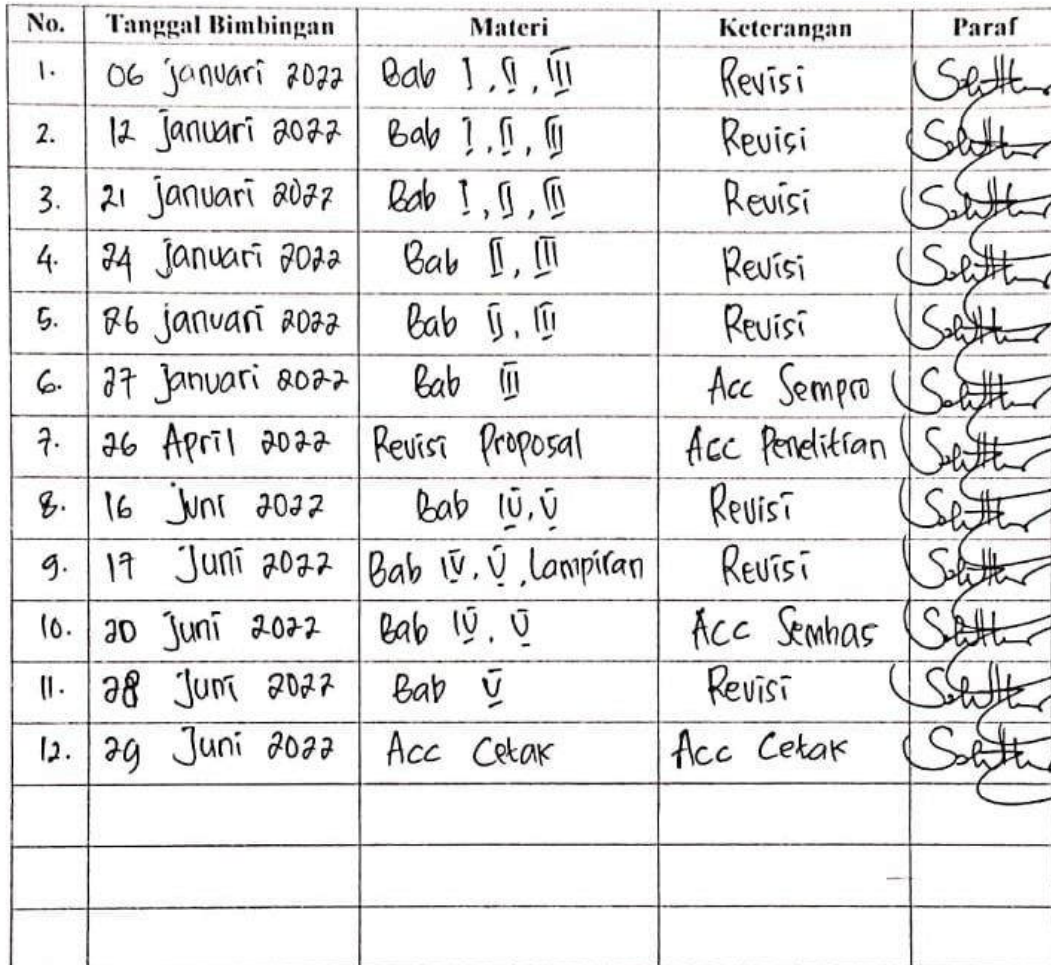 No. Tanggal Bimbingan Materi Keterangan Paraf
1. 06 januari 2022 Bab I, II, III Revisi
2. 12 Januari 2022 Bab I, II, III Revisi
3. 21 januari 2022 Bab I, II, III Revisi
4. 24 Januari 2022 Bab II, III Revisi
5. 26 januari 2022 Bab II, III Revisi
6. 27 Januari 2022 Bab III Acc Sempro
7. 26 April 2022 Revisi Proposal Acc Penelitian
8. 16 Juni 2022 Bab IV, V Revisi
9. 17 Juni 2022 Bab IV, V, Lampiran Revisi
10. 20 Juni 2022 Bab IV, V Acc Semhas
11. 28 Juni 2022 Bab V Revisi
12. 29 Juni 2022 Acc Cetak Acc Cetak